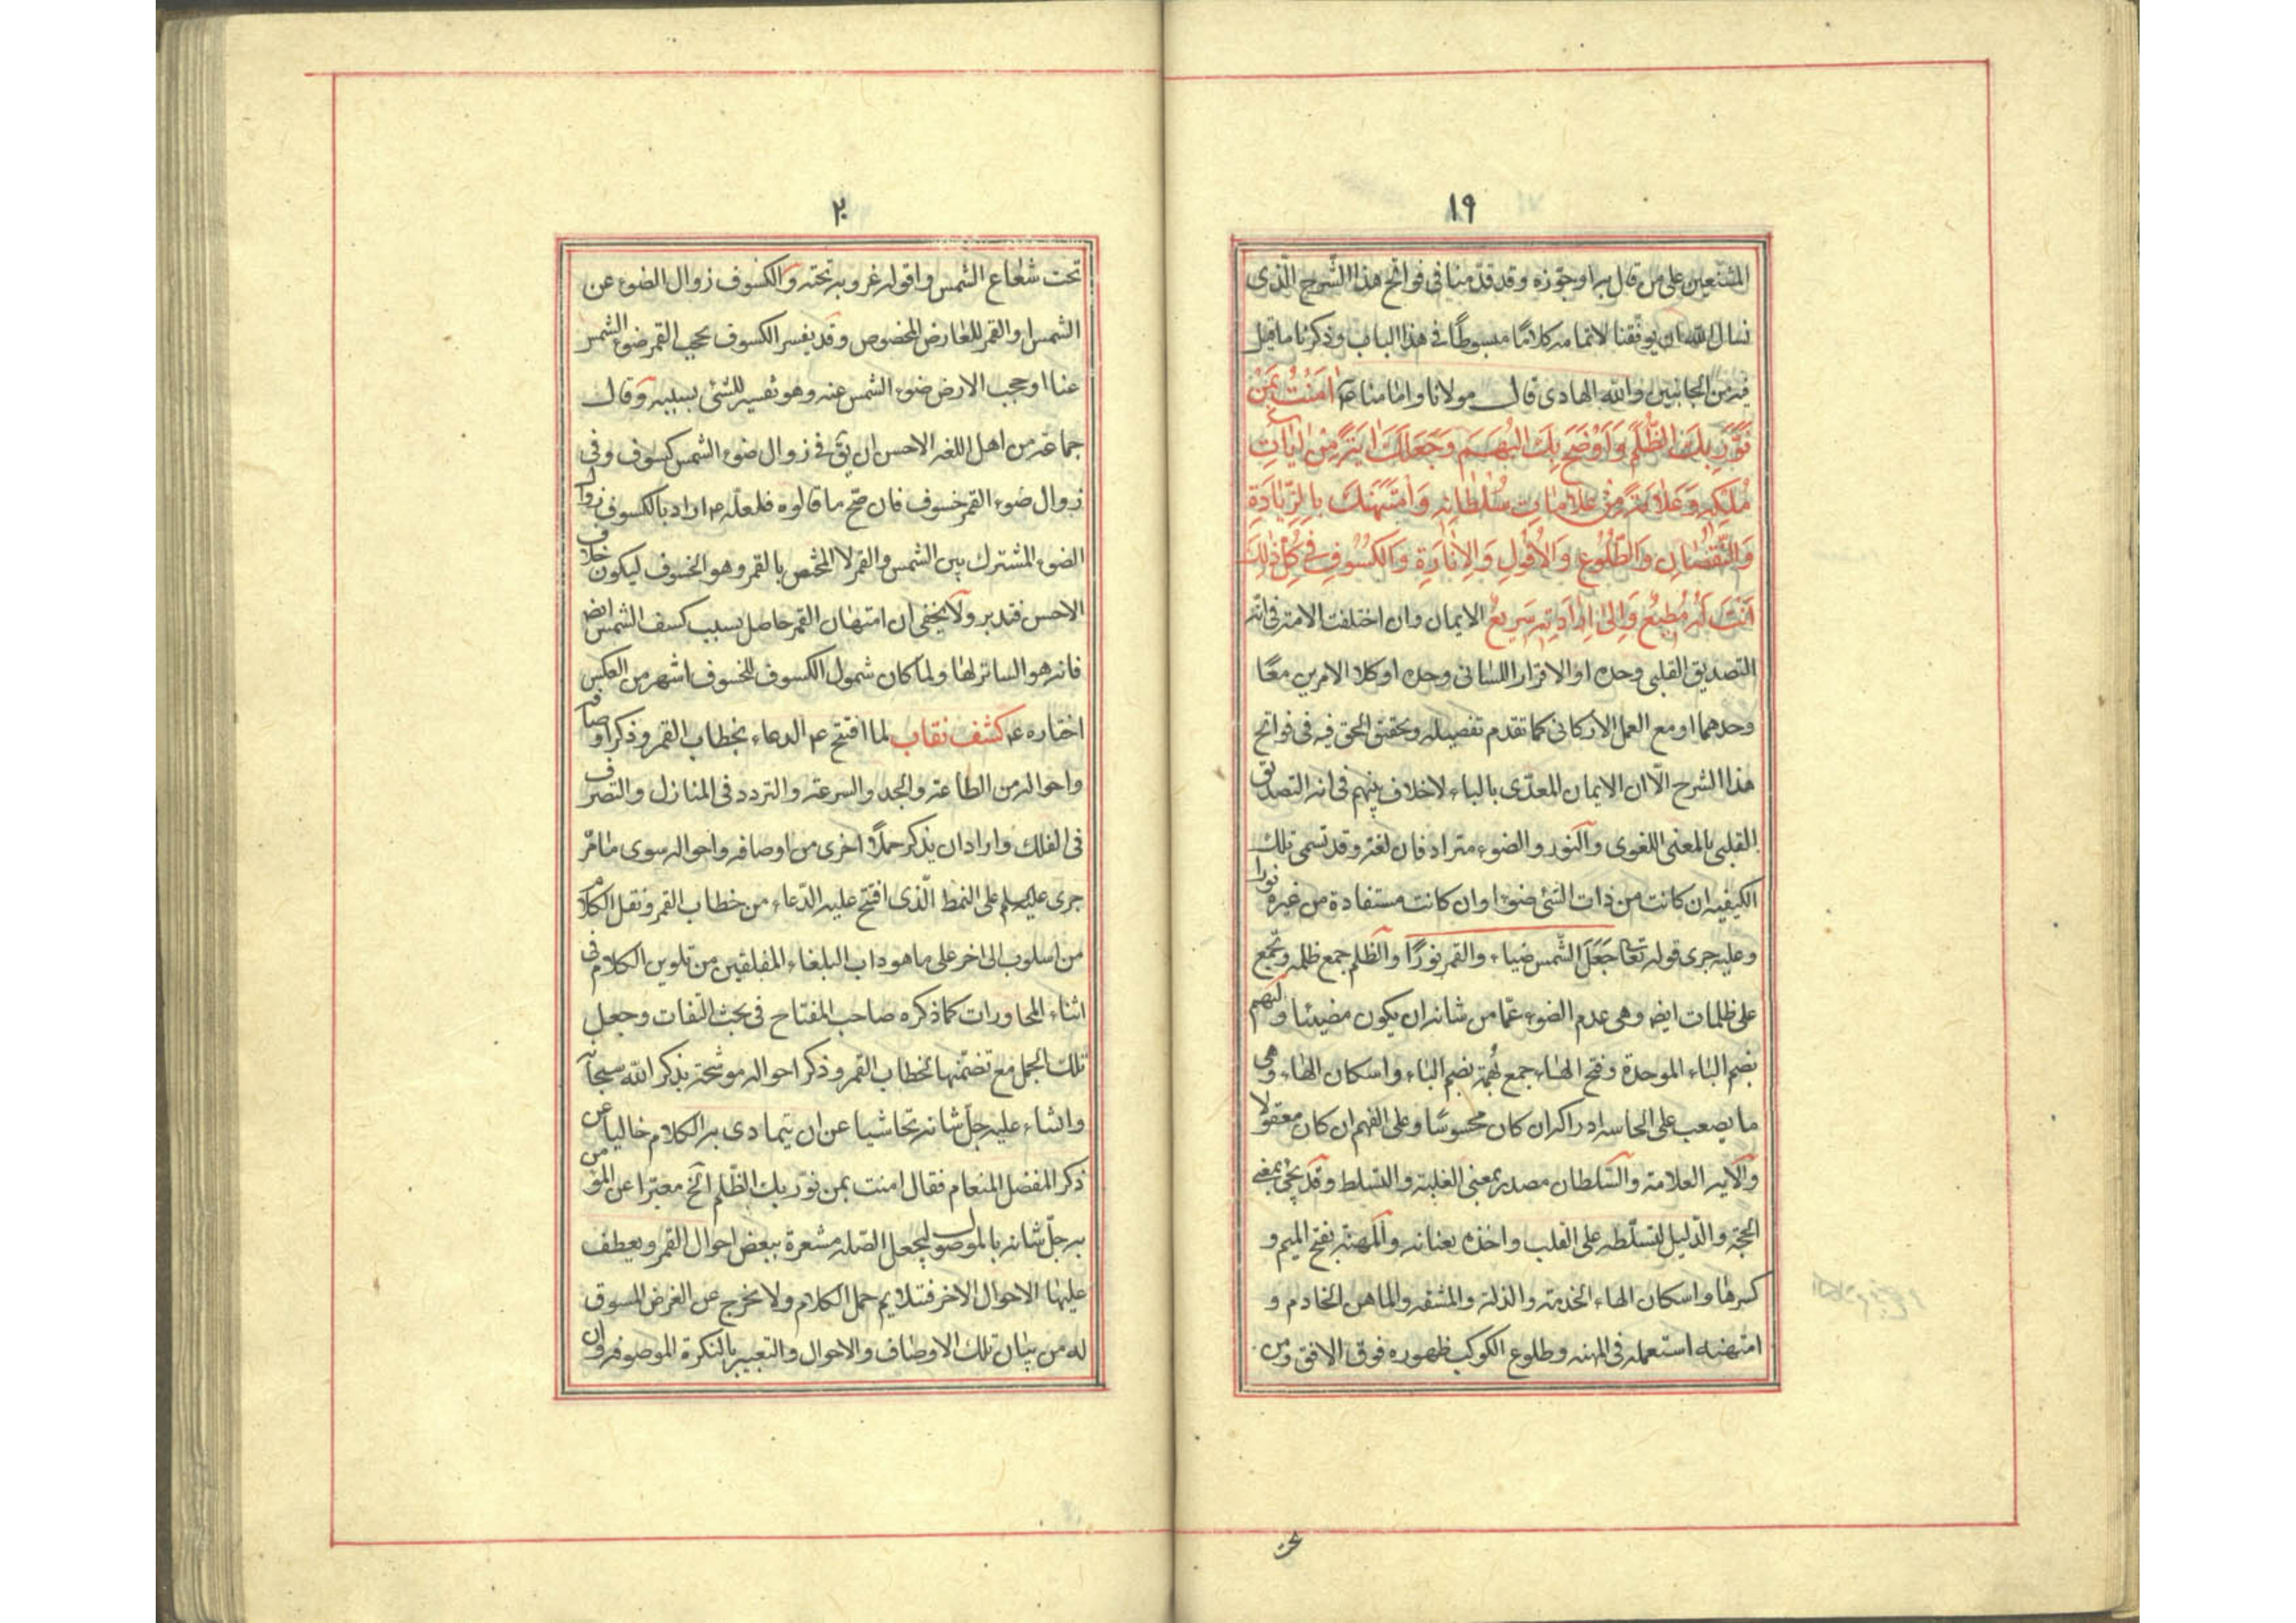 ١٩
المشنعين على من قال به او جوّزه وقد قدّمنا في فواتح هذا الشرح الّذي
نسال الله ان يوفّقنا لاتمامه كلامًا مبسوطًا في هذا الباب وذكرنا ما قيل
فيه من الجانبين والله الهادى قال مولانا وامامنا ع اٰمَنْتُ بِمَنْ
نَوَّرَ بِكَ الظُّلَمَ وَاَوْضَحَ بِكَ الْبُهَمَ وَجَعَلَكَ اٰيَةً مِنْ اٰيَاتِ
مُلْكِهِ وَعَلَامَةً مِنْ عَلَامَاتِ سُلْطَانِهِ وَامْتَهَنَكَ بِالزِّيَادَةِ
وَالنُّقْصَانِ وَالطُّلُوعِ وَالْاُفُولِ وَالْاِنَارَةِ وَالْكُسُوفِ فِي كُلِّ ذٰلِكَ
اَنْتَ لَهُ مُطِيعٌ وَاِلٰى اِرَادَتِهِ سَرِيعٌ الايمان وان اختلفت الامة في انّه
التصديق القلبى وحده او الاقرار اللسانى وحده او كلا الامرين معًا
وحدهما او مع العمل الأركانى كما تقدم تفصيله وتحقيق الحق فيه فى فواتح
هذا الشرح الّا ان الايمان المعدّى بالباء لا خلاف بينهم فى انه التصديق
القلبى بالمعنى اللغوى والنور والضوء مترادفان لغة وقد تسمى تلك
الكيفيه ان كانت من ذات الشئ ضوءا وان كانت مستفادة من غيره نورا
وعليه جرى قوله تعا جَعَلَ الشّمس ضياء والقمر نورًا والظلم جمع ظلمه وتجمع
على ظلمات ايضه وهى عدم الضوء عمّا من شانه ان يكون مضيئا والبهم
بضم الباء الموحدة وفتح الهاء جمع بُهمة بضم الباء واسكان الهاء وهى
ما يصعب على الحاسه ادراكه ان كان محسوسًا وعلى الفهم ان كان معقولا
والايه العلامة والسّلطان مصدر بمعنى الغلبة والتسلط وقد يجئ بمعنى
الحجّة والدّليل لتسلّطه على القلب واخذه بعنانه والمهنة بفتح الميم و
كسرها واسكان الهاء الخدمة والذلة والمشقه والماهن الخادم و
امتهنه استعمله فى المهنه وطلوع الكوكب ظهوره فوق الافق او من
٢٠
تحت شعاع الشمس وافوله غروبه تحته والكسوف زوال الضوء عن
الشمس او القمر للعارض المخصوص وقد يفسر الكسوف بحجب القمر ضوء الشمس
عنا او حجب الارض ضوء الشمس عنه وهو تفسير للشئ بسببه وقال
جماعة من اهل اللغه الاحسن ان يق فى زوال ضوء الشمس كسوف وفى
زوال ضوء القمر خسوف فان صحّ ما قالوه فلعلّه ع اراد بالكسوف زوال
الضوء المشترك بين الشمس والقمر لا المختص بالقمر وهو الخسوف ليكون خلاف
الاحسن فتدبر ولا يخفى ان امتهان القمر حاصل بسبب كسف الشمس ايضه
فانه هو الساتر لها ولما كان شمول الكسوف للخسوف اشهر من العكس
اختاره ع كشف نقاب لما افتتح ع الدعاء بخطاب القمر وذكر اوصافه
واحواله من الطاعة والجد والسرعة والتردد فى المنازل والتصرف
فى الفلك واراد ان يذكر جملًا اخرى من اوصافه واحواله سوى ما مرّ
جرى عليه السلم على النمط الّذى افتتح عليه الدّعاء من خطاب القمر ونقل الكلام
من اسلوب الى اخر على ما هو داب البلغاء المفلقين من تلوين الكلام فى
اثناء المحاورات كما ذكره صاحب المفتاح فى بحث التفات وجعل
تلك الجمل مع تضمّنها لخطاب القمر وذكر احواله موشّحة بذكر الله سبحانه
والثناء عليه جلّ شانه تحاشيا عن ان يتمادى به الكلام خاليا عن
ذكر المفضل المنعام فقال امنت بمن نوّر بك الظّلم الخ معبّرا عن المؤمن
به جلّ شانه بالموصول ليجعل الصّله مشعرة ببعض احوال القمر ويعطف
عليها الاحوال الاخر فتتلايم جمل الكلام ولا يخرج عن الغرض المسوق
له من بيان تلك الاوصاف والاحوال والتعبير بالنكرة الموصوفه وان
تحت